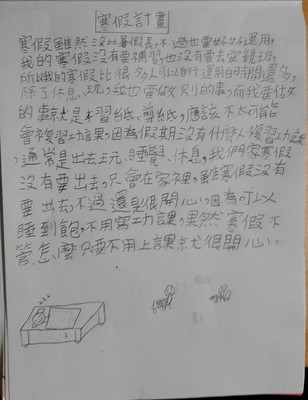 寒假計畫
寒假雖然沒比暑假長,不過也要好好運用,
我的寒假沒有要補習,也沒有要去安親班,
所以我的寒假比很多人可以自行運用的時間還多,
除了休息、玩,我也要做別的事,而我要做
的事就是練習摺紙、剪紙,應該不太可能
會複習功課,因為假期沒有什麼人複習功課
,通常是出去玩、睡覺、休息,我們家寒假
沒有要出去,只會在家裡,雖寒假沒有
要出去,不過還是很開心,因為可以
睡到飽,不用寫功課,果然寒假不
管怎麼只要不用上課就很開心。
zzz